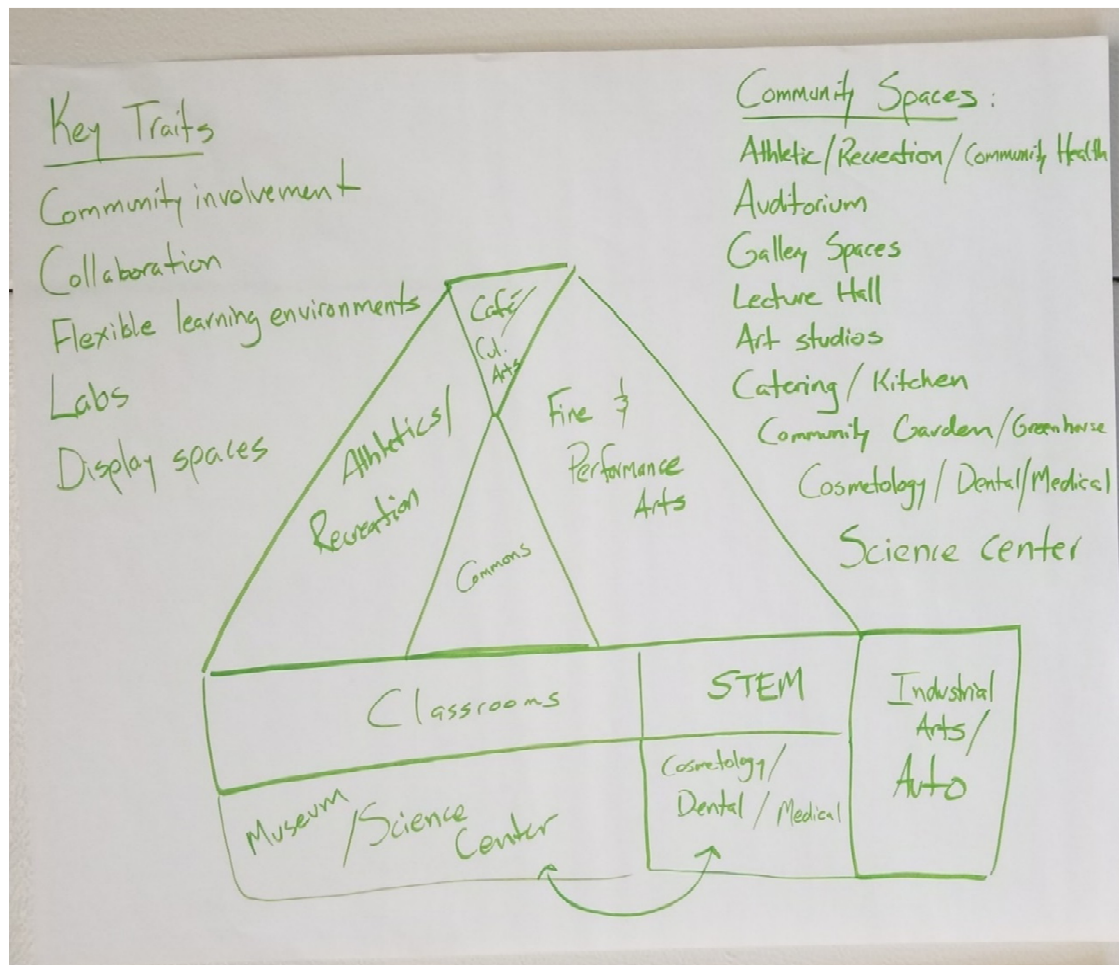 Key Traits
Community involvement
Collaboration
Flexible learning environments
Labs
Display spaces
Community Spaces:
Athletic/Recreation/Community Health
Auditorium
Gallery Spaces
Lecture Hall
Art studios
Catering/Kitchen
Community Garden/Greenhouse
Cosmetology/Dental/Medical
Science center
Café/
Cul.
Arts
Athletics/
Recreation
Fine &
Performance
Arts
Commons
Classrooms
STEM
Industrial
Arts/
Auto
Museum
/Science
Center
Cosmetology/
Dental/Medical